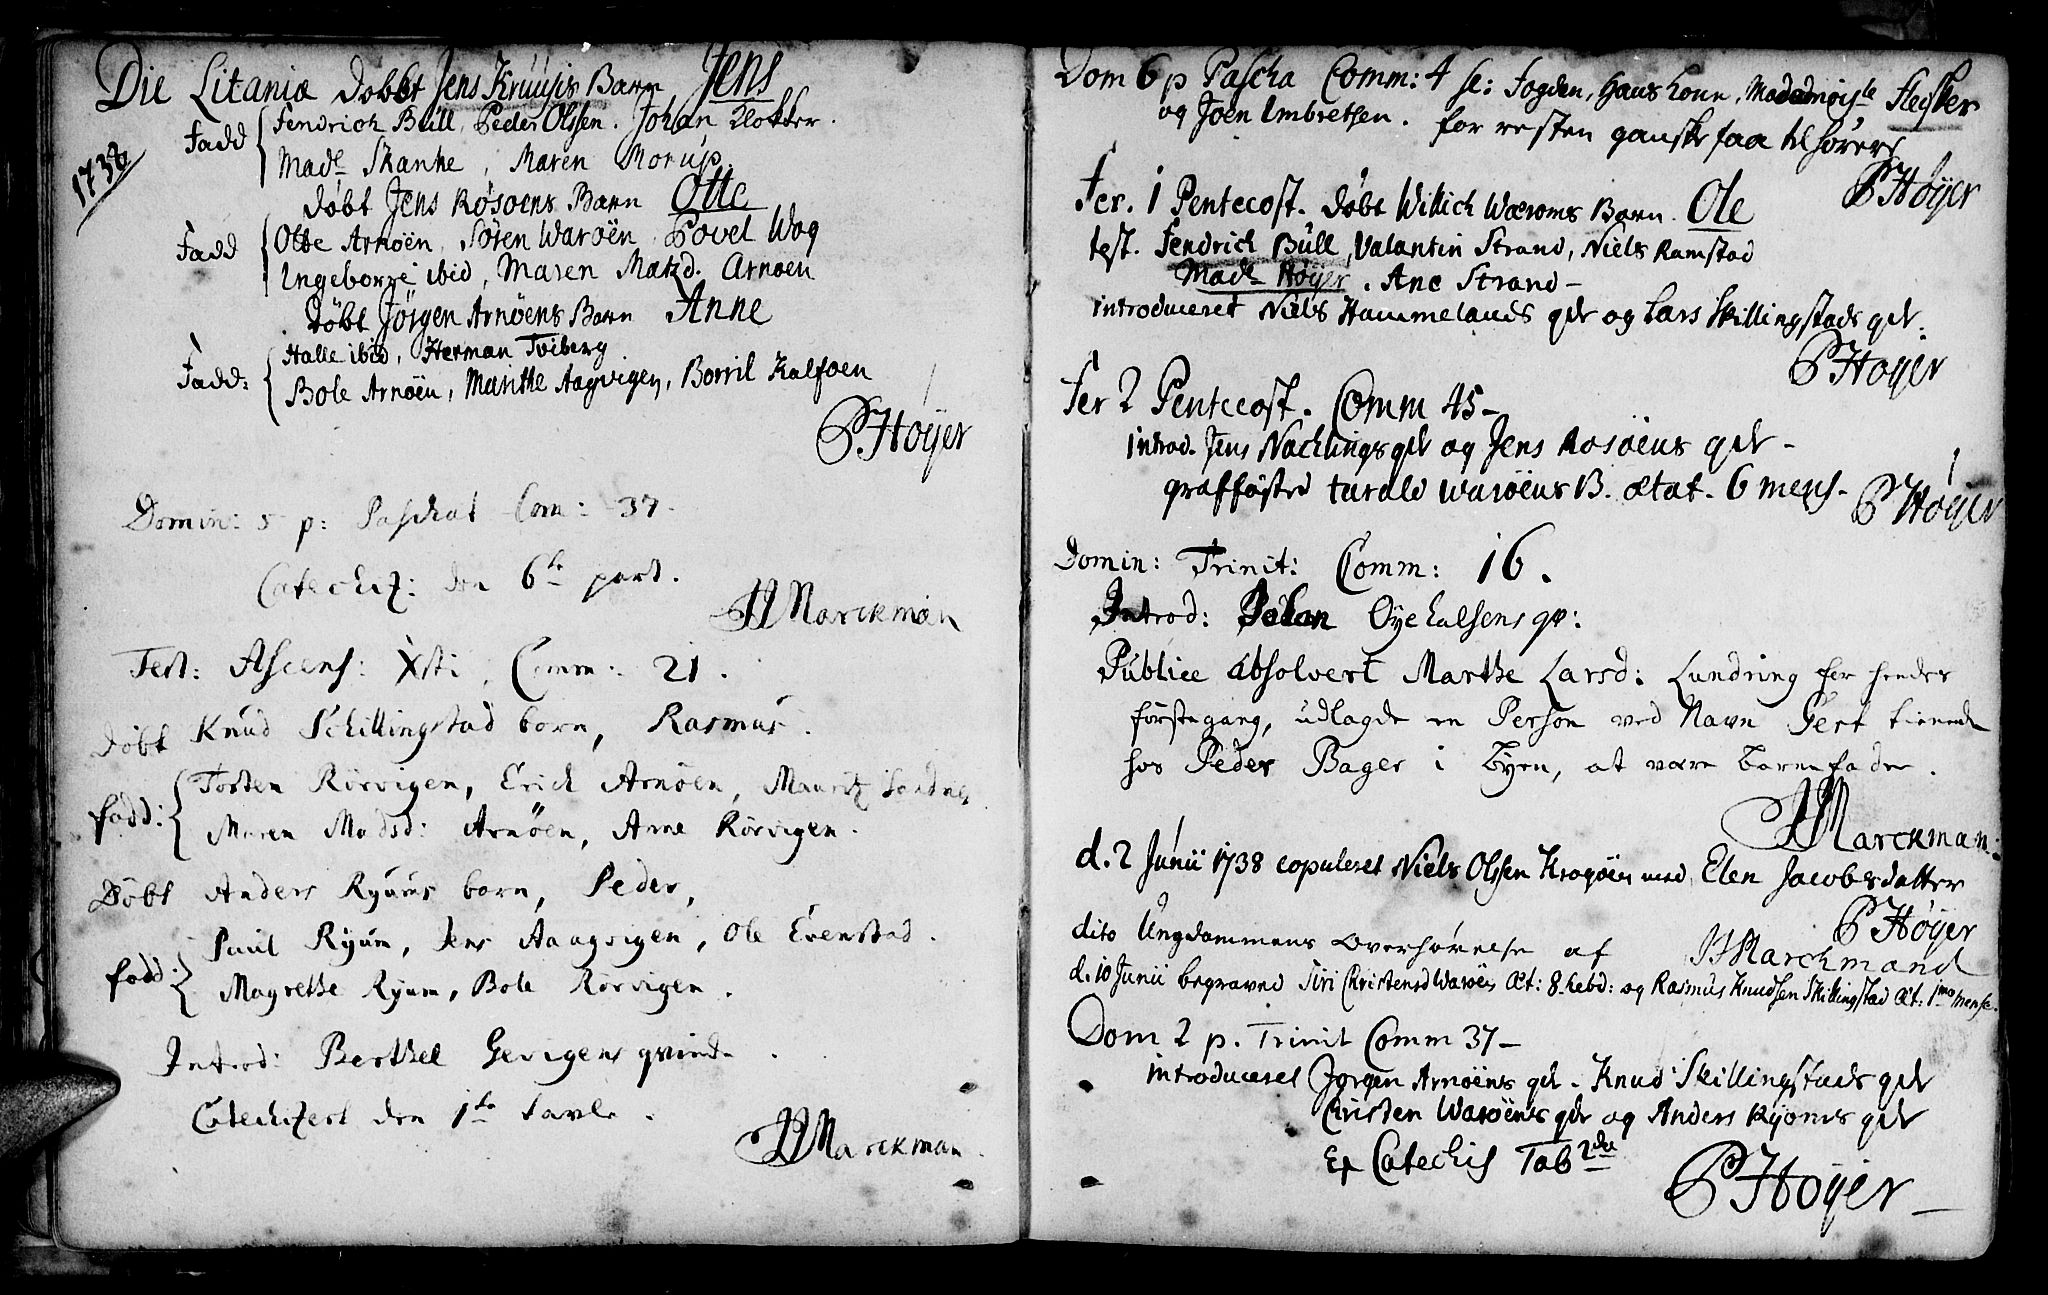 Die Litaniæ Døbt Jens Kruusis Barn Jens
1738
Fadd Fendrich Büll, Peder Olssen. Johan Klokker.
Madle Skanke, Maren Morup.
Døbt Jens Røsøens Barn Otte
Fadd Otte Arnøen, Søren Warøen, Povel Wog
Ingeborre ibid, Maren Matzd. Arnøen
Døbt Jörgen Arnøens Barn Anne
Halle ibid, Herman Tviberg
Fadd: Bole Arnöen, Marithe Aagvigen, Borril Kalfoen
P Höyer
Domin: 5 p: Paschat Com: 37.
Catechiz: den 6te part.
HMarckman
Fest: Ascens: Xsti, Comm: 21.
Døbt Knud Schillingstad born, Rasmus.
fadd: Torsten Rörvigen, Erich Arnöen, Mauritz Sandnes
Maren Madsd: Arnöen, Arne Rörvigen.
Döbt Anders Ryums born, Peder,
fadd: Paul Ryum, Jens Aaagvigen, Ole Evenstad.
Magrethe Ryum, Bole Rörvigen.
Introd: Berthel Gevigens qvinde.
Catechizert den 1te tavle.
HMarckman
Dom 6 p Pascha Comm: 4 se: Fogden, Hans Kone, Madmoisle Flejsker
og Joen Imbretsen. for resten ganske faa tilhörere
P Höyer
Fer. 1 Pentecost. Døbt Willich Wæroms Barn. Ole
test. Fendrich Büll, Valantin Strand, Niels Ramstad
Madle Höyer. Ane Strand-
introduceret Niels Hammelands qde og Lars Skillingstads qde.
P Höyer
Fer 2 Pentecost. Comm 45-
introd. Jens Nachlings qde og Jens Rosöens qde-
graffæsted tarald Warøens B. ætat. 6 mens-
P Höyer
Domin: Trinit: Comm: 16.
Introd: Johan Øyehalsens qv:
Publice absolvert Marthe Larsd: Lundring for hendes
første gang, udlagde en Person ved Navn Gert tienende
hos Peder Bager i Byen, at være barnefader.
HMarckman:
d. 2 Junii 1738 copuleret Niels Olssen Kragøen med Elen Jacobsdatter
P Höyer
dito Ungdommens Overhørelse af HMarckmand
d. 10 Junii begraved Siri Christensd Warøen Æt: 8 hebd: og Rasmus Knudsen Skillingstad Æt: 1mo mense.
Dom 2 p. Trinit Comm 37-
introduceret Jörgen Arnøens qde. Knud Skillingstads qde
Christen Warøens qde og Anders Ryoms qde
Ex Catechis Tab 2da
P Höyer